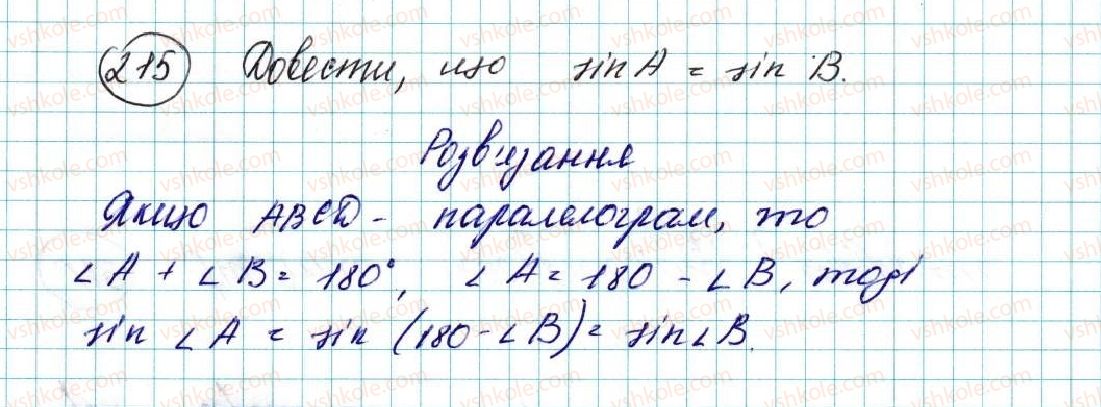 215 Довести, що sin A = sin B.
Розв'язання
Якщо ABCD - паралелограм, то
∠A + ∠B = 180°, ∠A = 180 - ∠B, тоді
sin ∠A = sin (180 - ∠B) = sin ∠B.
vshkole.com